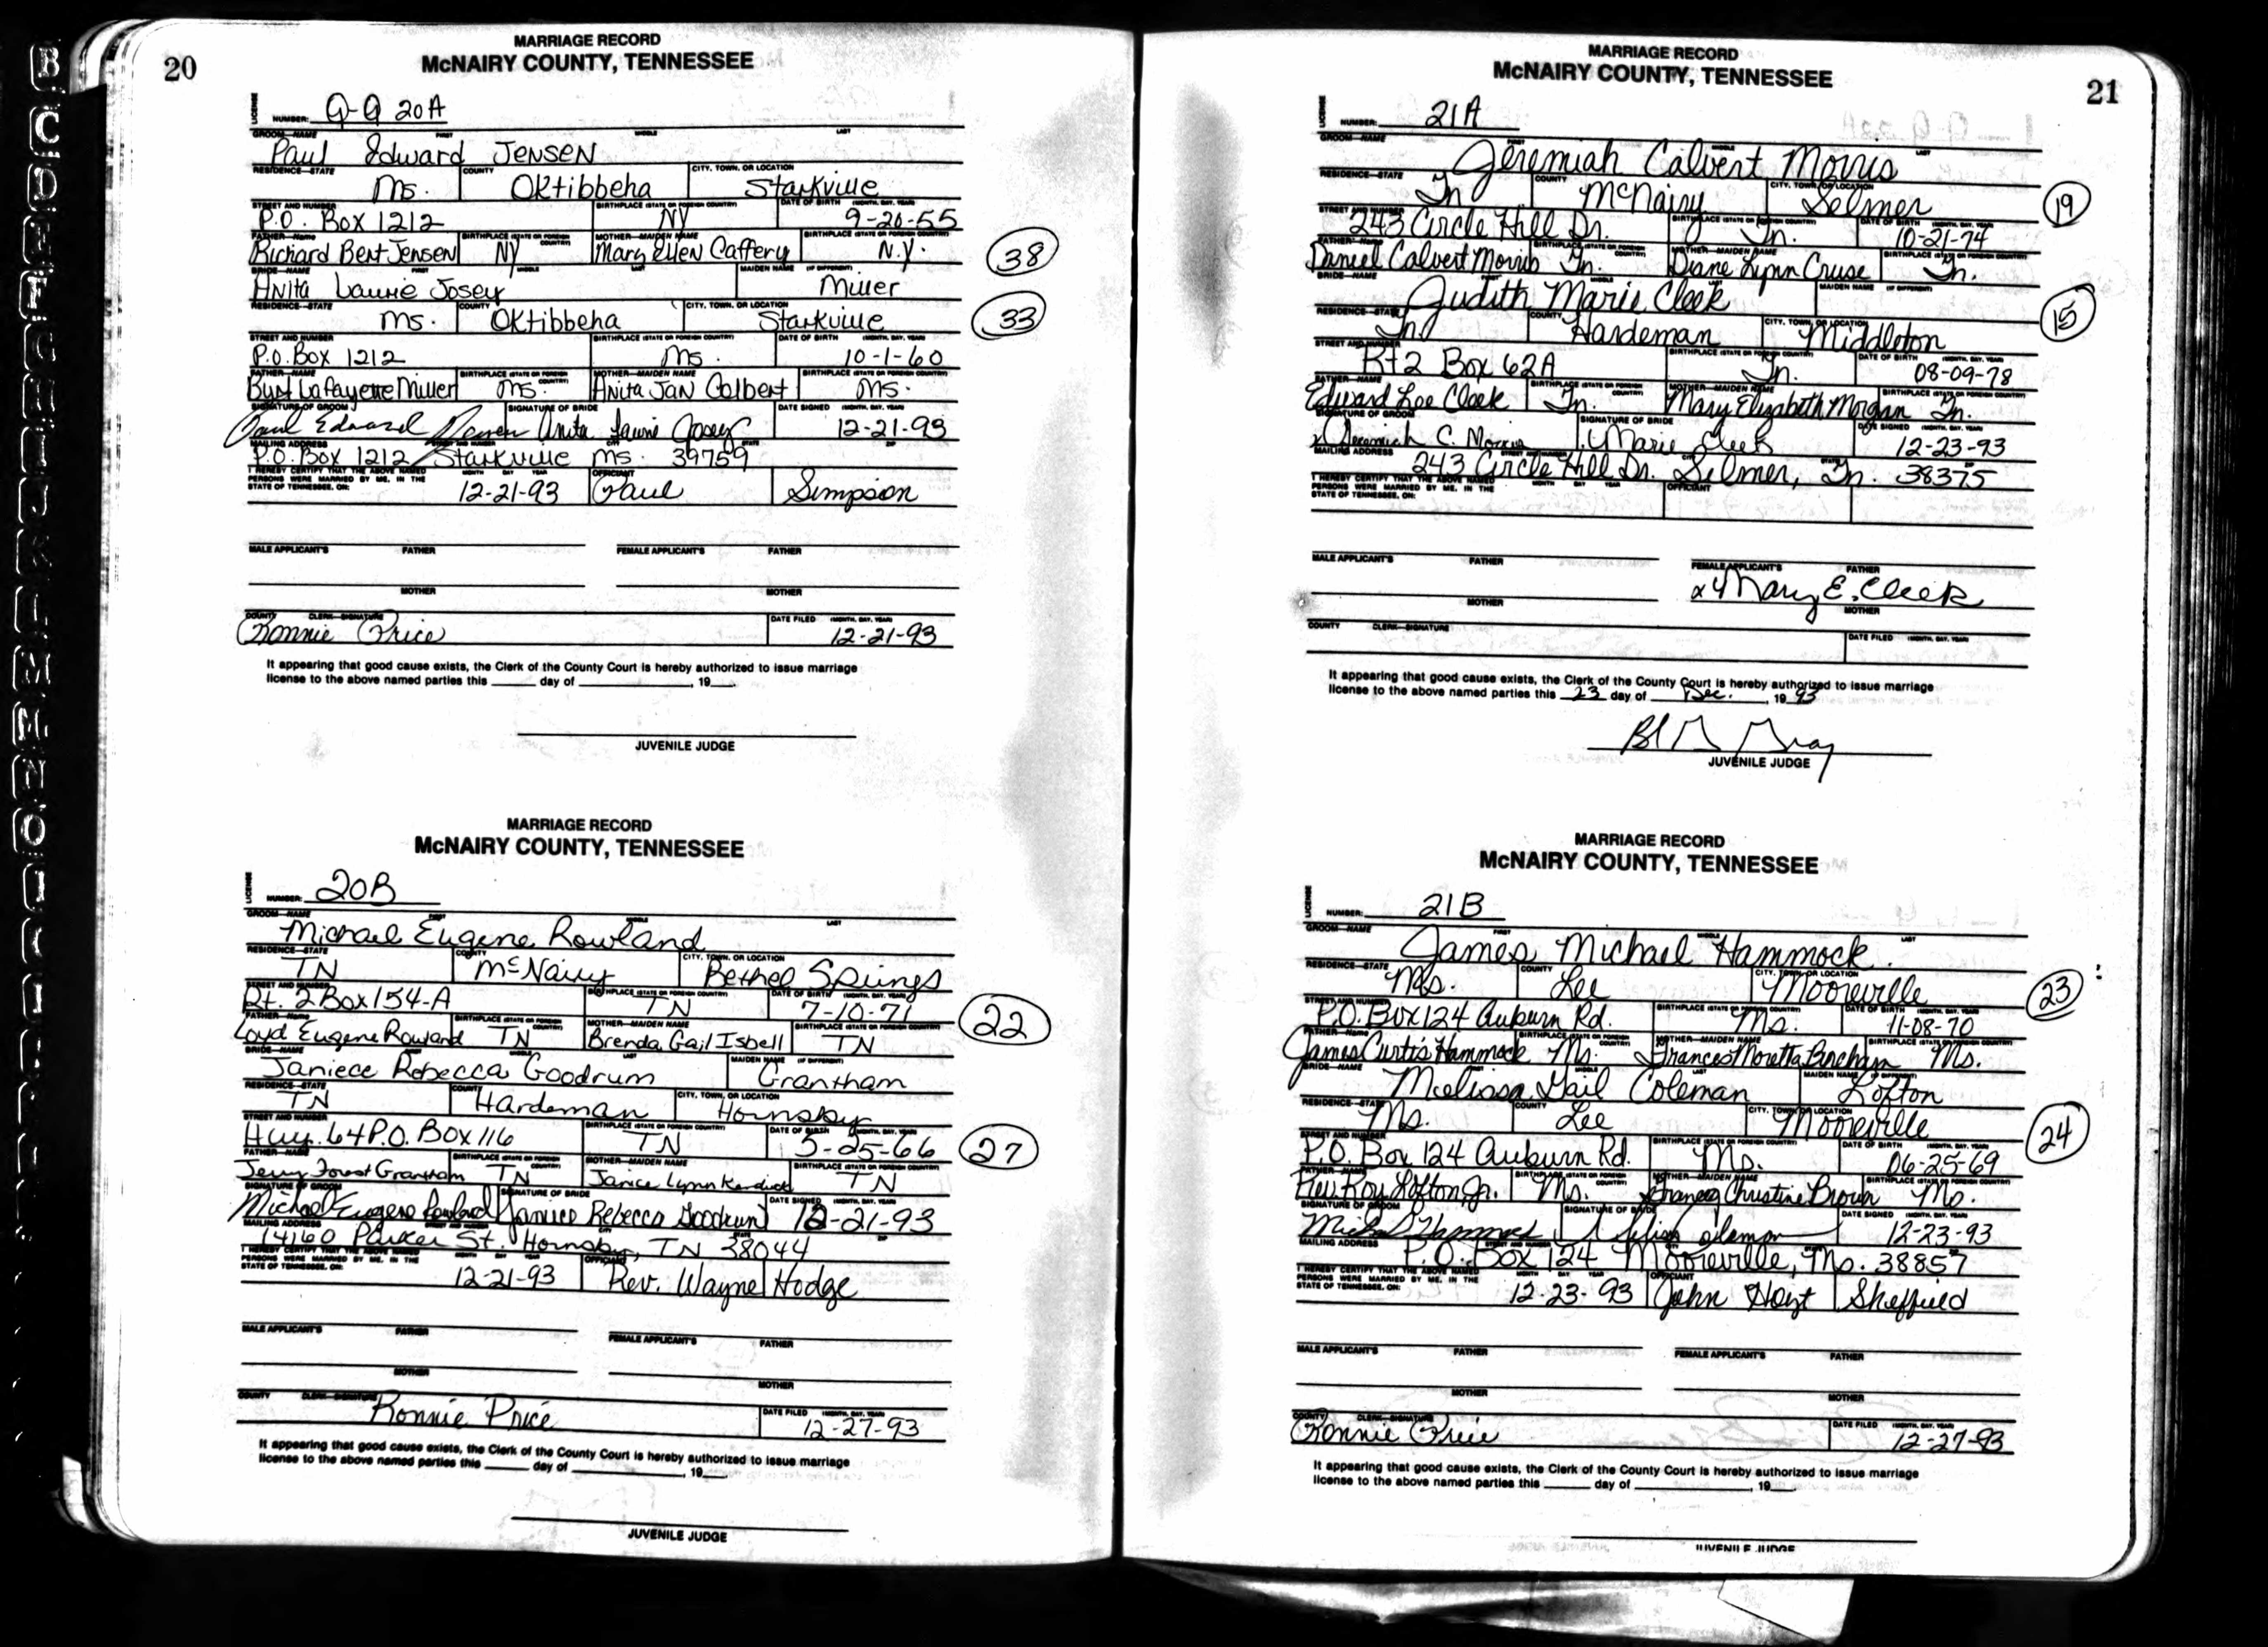 20
MARRIAGE RECORD
McNAIRY COUNTY, TENNESSEE
LICENSE NUMBER: Q-Q 20A
GROOM—NAME FIRST MIDDLE LAST
Paul Edward JENSEN
RESIDENCE—STATE COUNTY CITY, TOWN, OR LOCATION
Ms. Oktibbeha Starkville
STREET AND NUMBER BIRTHPLACE (STATE OR FOREIGN COUNTRY) DATE OF BIRTH (MONTH, DAY, YEAR)
P.O. Box 1212 NY 9-20-55
FATHER—Name BIRTHPLACE (STATE OR FOREIGN COUNTRY) MOTHER—MAIDEN NAME BIRTHPLACE (STATE OR FOREIGN COUNTRY)
Richard Bert Jensen NY Mary Ellen Caffery N.Y. 38
BRIDE—NAME FIRST MIDDLE LAST MAIDEN NAME (IF DIFFERENT)
Anita Laurie Josey Miller
RESIDENCE—STATE COUNTY CITY, TOWN, OR LOCATION
Ms. Oktibbeha Starkville 33
STREET AND NUMBER BIRTHPLACE (STATE OR FOREIGN COUNTRY) DATE OF BIRTH (MONTH, DAY, YEAR)
P.O. Box 1212 Ms. 10-1-60
FATHER—NAME BIRTHPLACE (STATE OR FOREIGN COUNTRY) MOTHER—MAIDEN NAME BIRTHPLACE (STATE OR FOREIGN COUNTRY)
LaFayette Miller Ms. Anita Jan Colbert Ms.
SIGNATURE OF GROOM SIGNATURE OF BRIDE DATE SIGNED (MONTH, DAY, YEAR)
Paul Edward Jensen Anita Laurie Josey 12-21-93
MAILING ADDRESS STREET AND NUMBER CITY STATE ZIP
P.O. Box 1212 Starkville Ms. 39759
I HEREBY CERTIFY THAT THE ABOVE NAMED PERSONS WERE MARRIED BY ME, IN THE STATE OF TENNESSEE, ON: MONTH DAY YEAR OFFICIANT
12-21-93 Paul Simpson
MALE APPLICANT'S FATHER FEMALE APPLICANT'S FATHER
MOTHER MOTHER
COUNTY CLERK—SIGNATURE DATE FILED (MONTH, DAY, YEAR)
Ronnie Price 12-21-93
It appearing that good cause exists, the Clerk of the County Court is hereby authorized to issue marriage
license to the above named parties this ____ day of ____, 19__.
JUVENILE JUDGE
MARRIAGE RECORD
McNAIRY COUNTY, TENNESSEE
LICENSE NUMBER: 20B
GROOM—NAME FIRST MIDDLE LAST
Michael Eugene Rowland
RESIDENCE—STATE COUNTY CITY, TOWN, OR LOCATION
TN McNairy Bethel Springs
STREET AND NUMBER BIRTHPLACE (STATE OR FOREIGN COUNTRY) DATE OF BIRTH (MONTH, DAY, YEAR)
Rt. 2 Box 154-A TN 7-10-71 22
FATHER—Name BIRTHPLACE (STATE OR FOREIGN COUNTRY) MOTHER—MAIDEN NAME BIRTHPLACE (STATE OR FOREIGN COUNTRY)
Loyd Eugene Rowland TN Brenda Gail Isbell TN
BRIDE—NAME MIDDLE LAST MAIDEN NAME (IF DIFFERENT)
Janiece Rebecca Goodrum Grantham
RESIDENCE—STATE COUNTY CITY, TOWN, OR LOCATION
TN Hardeman Hornsby
STREET AND NUMBER BIRTHPLACE (STATE OR FOREIGN COUNTRY) DATE OF BIRTH (MONTH, DAY, YEAR)
Hwy. 64 P.O. Box 116 TN 5-25-66 27
FATHER—NAME BIRTHPLACE (STATE OR FOREIGN COUNTRY) MOTHER—MAIDEN NAME BIRTHPLACE (STATE OR FOREIGN COUNTRY)
Jerry Forest Grantham TN Janice Lynn TN
SIGNATURE OF GROOM SIGNATURE OF BRIDE DATE SIGNED (MONTH, DAY, YEAR)
Michael Eugene Rowland Janiece Rebecca Goodrum 12-21-93
MAILING ADDRESS STREET AND NUMBER CITY STATE ZIP
14160 Parker St. Hornsby, TN 38044
I HEREBY CERTIFY THAT THE ABOVE NAMED PERSONS WERE MARRIED BY ME, IN THE STATE OF TENNESSEE, ON: MONTH DAY YEAR OFFICIANT
12-21-93 Rev. Wayne Hodge
MALE APPLICANT'S FATHER FEMALE APPLICANT'S FATHER
MOTHER MOTHER
COUNTY CLERK—SIGNATURE DATE FILED (MONTH, DAY, YEAR)
Ronnie Price 12-27-93
It appearing that good cause exists, the Clerk of the County Court is hereby authorized to issue marriage
license to the above named parties this ____ day of ____, 19__.
JUVENILE JUDGE
21
MARRIAGE RECORD
McNAIRY COUNTY, TENNESSEE
LICENSE NUMBER: 21A
GROOM—NAME FIRST MIDDLE LAST
Jeremiah Calvert Morris
RESIDENCE—STATE COUNTY CITY, TOWN, OR LOCATION
Tn McNairy Selmer 19
STREET AND NUMBER BIRTHPLACE (STATE OR FOREIGN COUNTRY) DATE OF BIRTH (MONTH, DAY, YEAR)
243 Circle Hill Dr. Tn. 10-21-74
FATHER—Name BIRTHPLACE (STATE OR FOREIGN COUNTRY) MOTHER—MAIDEN NAME BIRTHPLACE (STATE OR FOREIGN COUNTRY)
Daniel Calvert Morris Tn. Diane Lynn Cruse Tn.
BRIDE—NAME FIRST MIDDLE LAST MAIDEN NAME (IF DIFFERENT)
Judith Marie Cleek 15
RESIDENCE—STATE COUNTY CITY, TOWN, OR LOCATION
Tn Hardeman Middleton
STREET AND NUMBER BIRTHPLACE (STATE OR FOREIGN COUNTRY) DATE OF BIRTH (MONTH, DAY, YEAR)
Rt 2 Box 62A Tn. 08-09-78
FATHER—NAME BIRTHPLACE (STATE OR FOREIGN COUNTRY) MOTHER—MAIDEN NAME BIRTHPLACE (STATE OR FOREIGN COUNTRY)
Edward Lee Cleek Tn. Mary Elizabeth Morgan Tn.
SIGNATURE OF GROOM SIGNATURE OF BRIDE DATE SIGNED (MONTH, DAY, YEAR)
x Jeremiah C. Morris J. Marie Cleek 12-23-93
MAILING ADDRESS STREET AND NUMBER CITY STATE ZIP
243 Circle Hill Dr. Selmer, Tn. 38375
I HEREBY CERTIFY THAT THE ABOVE NAMED PERSONS WERE MARRIED BY ME, IN THE STATE OF TENNESSEE, ON: MONTH DAY YEAR OFFICIANT
MALE APPLICANT'S FATHER FEMALE APPLICANT'S FATHER
x Mary E. Cleek
MOTHER MOTHER
COUNTY CLERK—SIGNATURE DATE FILED (MONTH, DAY, YEAR)
It appearing that good cause exists, the Clerk of the County Court is hereby authorized to issue marriage
license to the above named parties this 23 day of Dec., 1993
Gray
JUVENILE JUDGE
MARRIAGE RECORD
McNAIRY COUNTY, TENNESSEE
LICENSE NUMBER: 21B
GROOM—NAME FIRST MIDDLE LAST
James Michael Hammock
RESIDENCE—STATE COUNTY CITY, TOWN, OR LOCATION
Ms. Lee Mooreville 23
STREET AND NUMBER BIRTHPLACE (STATE OR FOREIGN COUNTRY) DATE OF BIRTH (MONTH, DAY, YEAR)
P.O. Box 124 Auburn Rd. Ms. 11-08-70
FATHER—Name BIRTHPLACE (STATE OR FOREIGN COUNTRY) MOTHER—MAIDEN NAME BIRTHPLACE (STATE OR FOREIGN COUNTRY)
James Curtis Hammock Ms. Frances Moretta Bincham Ms.
BRIDE—NAME FIRST MIDDLE LAST MAIDEN NAME (IF DIFFERENT)
Melissa Gail Coleman Lofton
RESIDENCE—STATE COUNTY CITY, TOWN OR LOCATION
Ms. Lee Mooreville 24
STREET AND NUMBER BIRTHPLACE (STATE OR FOREIGN COUNTRY) DATE OF BIRTH (MONTH, DAY, YEAR)
P.O. Box 124 Auburn Rd. Ms. 06-25-69
FATHER—NAME BIRTHPLACE (STATE OR FOREIGN COUNTRY) MOTHER—MAIDEN NAME BIRTHPLACE (STATE OR FOREIGN COUNTRY)
Rev. Roy Lofton Jr. Ms. Frances Christine Brown Ms.
SIGNATURE OF GROOM SIGNATURE OF BRIDE DATE SIGNED (MONTH, DAY, YEAR)
12-23-93
MAILING ADDRESS STREET AND NUMBER CITY STATE ZIP
P.O. Box 124 Mooreville, Ms. 38857
I HEREBY CERTIFY THAT THE ABOVE NAMED PERSONS WERE MARRIED BY ME, IN THE STATE OF TENNESSEE, ON: MONTH DAY YEAR OFFICIANT
12-23-93 John Hoyt Sheffield
MALE APPLICANT'S FATHER FEMALE APPLICANT'S FATHER
MOTHER MOTHER
COUNTY CLERK—SIGNATURE DATE FILED (MONTH, DAY, YEAR)
Ronnie Price 12-27-93
It appearing that good cause exists, the Clerk of the County Court is hereby authorized to issue marriage
license to the above named parties this ____ day of ____, 19__.
JUVENILE JUDGE